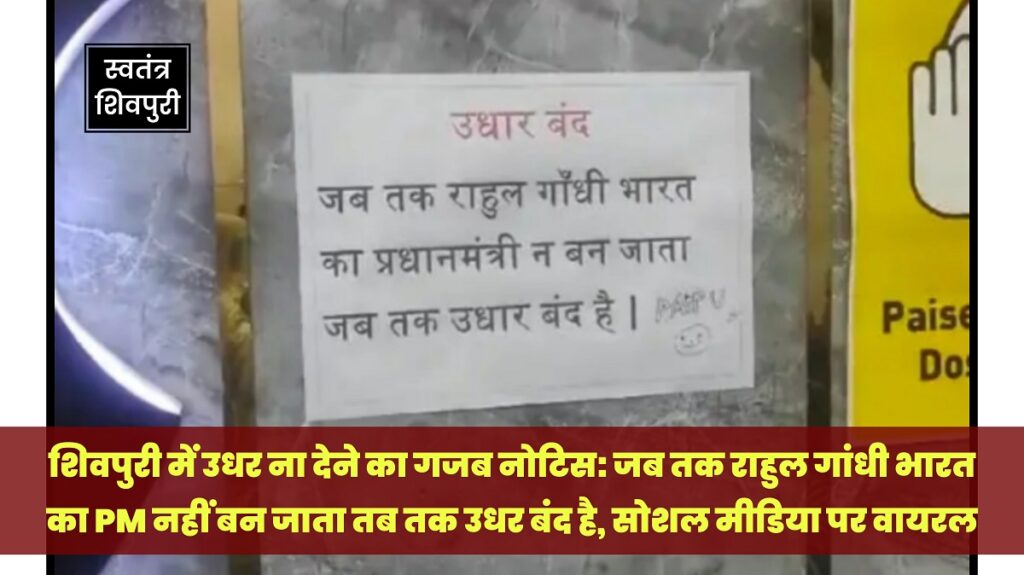 स्वतंत्र
शिवपुरी
उधार बंद
जब तक राहुल गाँधी भारत
का प्रधानमंत्री न बन जाता
जब तक उधार बंद है |
Paise
शिवपुरी में उधर ना देने का गजब नोटिस: जब तक राहुल गांधी भारत
का PM नहीं बन जाता तब तक उधर बंद है, सोशल मीडिया पर वायरल